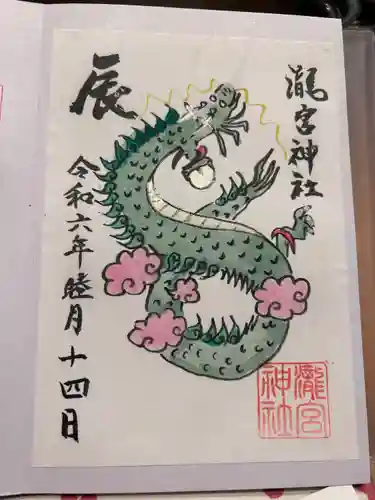 瀧宮神社
辰
令和六年睦月十四日
瀧宮
神社